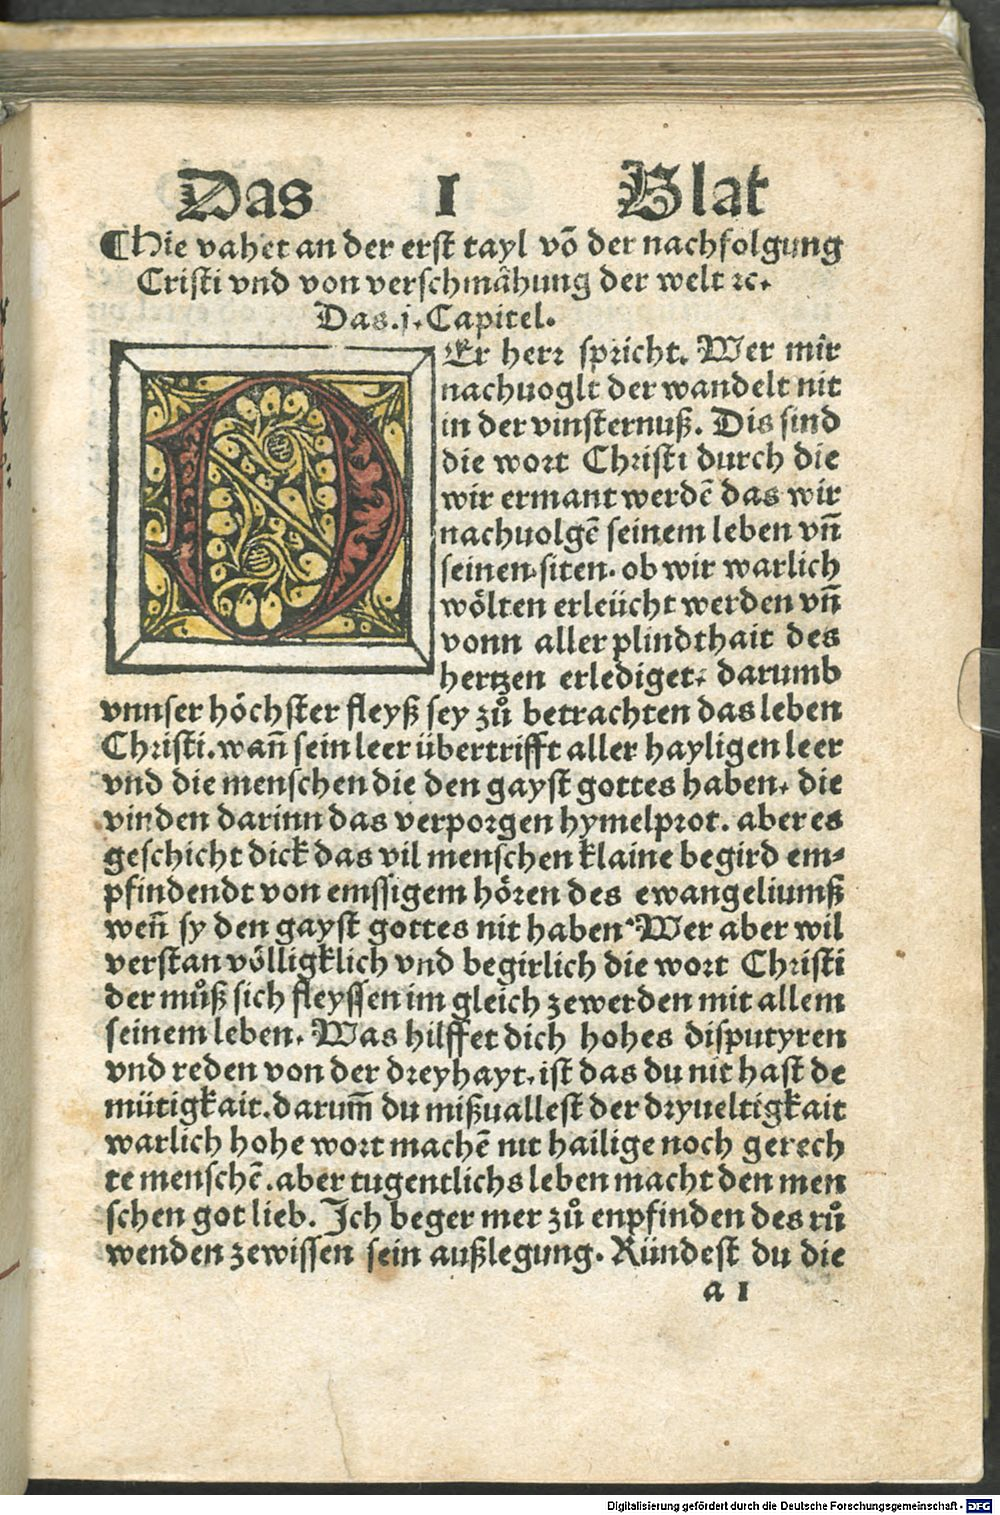 Das I Blat
¶Hie vahet an der erst tayl võ der nachfolgung
Cristi vnd von verschmåhung der welt ꝛc.
Das .j. Capitel.
DEr herr spricht. Wer mir
nachuoglt der wandelt nit
in der vinsternuß. Dis sind
die wort Christi durch die
wir ermant werdē das wir
nachuolgē seinem leben vñ
seinen siten. ob wir warlich
wölten erleücht werden vñ
vonn aller plindthait des
hertzen erlediget. darumb
vnnser höchster fleyß sey zů betrachten das leben
Christi. wañ sein leer übertrifft aller hayligen leer
vnd die menschen die den gayst gottes haben. die
vinden darinn das verporgen hymelprot. aber es
geschicht dick das vil menschen klaine begird em⸗
pfindendt von emssigem hören des ewangeliumß
weñ sy den gayst gottes nit haben Wer aber wil
verstan völligklich vnd begirlich die wort Christi
der můß sich fleyssen im gleich zewerden mit allem
seinem leben. Was hilffet dich hohes disputyren
vnd reden von der dreyhayt. ist das du nit hast de
mütigkait. darum̃ du mißuallest der dryueltigkait
warlich hohe wort machē nit hailige noch gerech
te menschē. aber tugentlichs leben macht den men
schen got lieb. Ich beger mer zů enpfinden des rů
wenden zewissen sein außlegung. Kündest du die
a 1
Digitalisierung gefördert durch die Deutsche Forschungsgemeinschaft - DFG